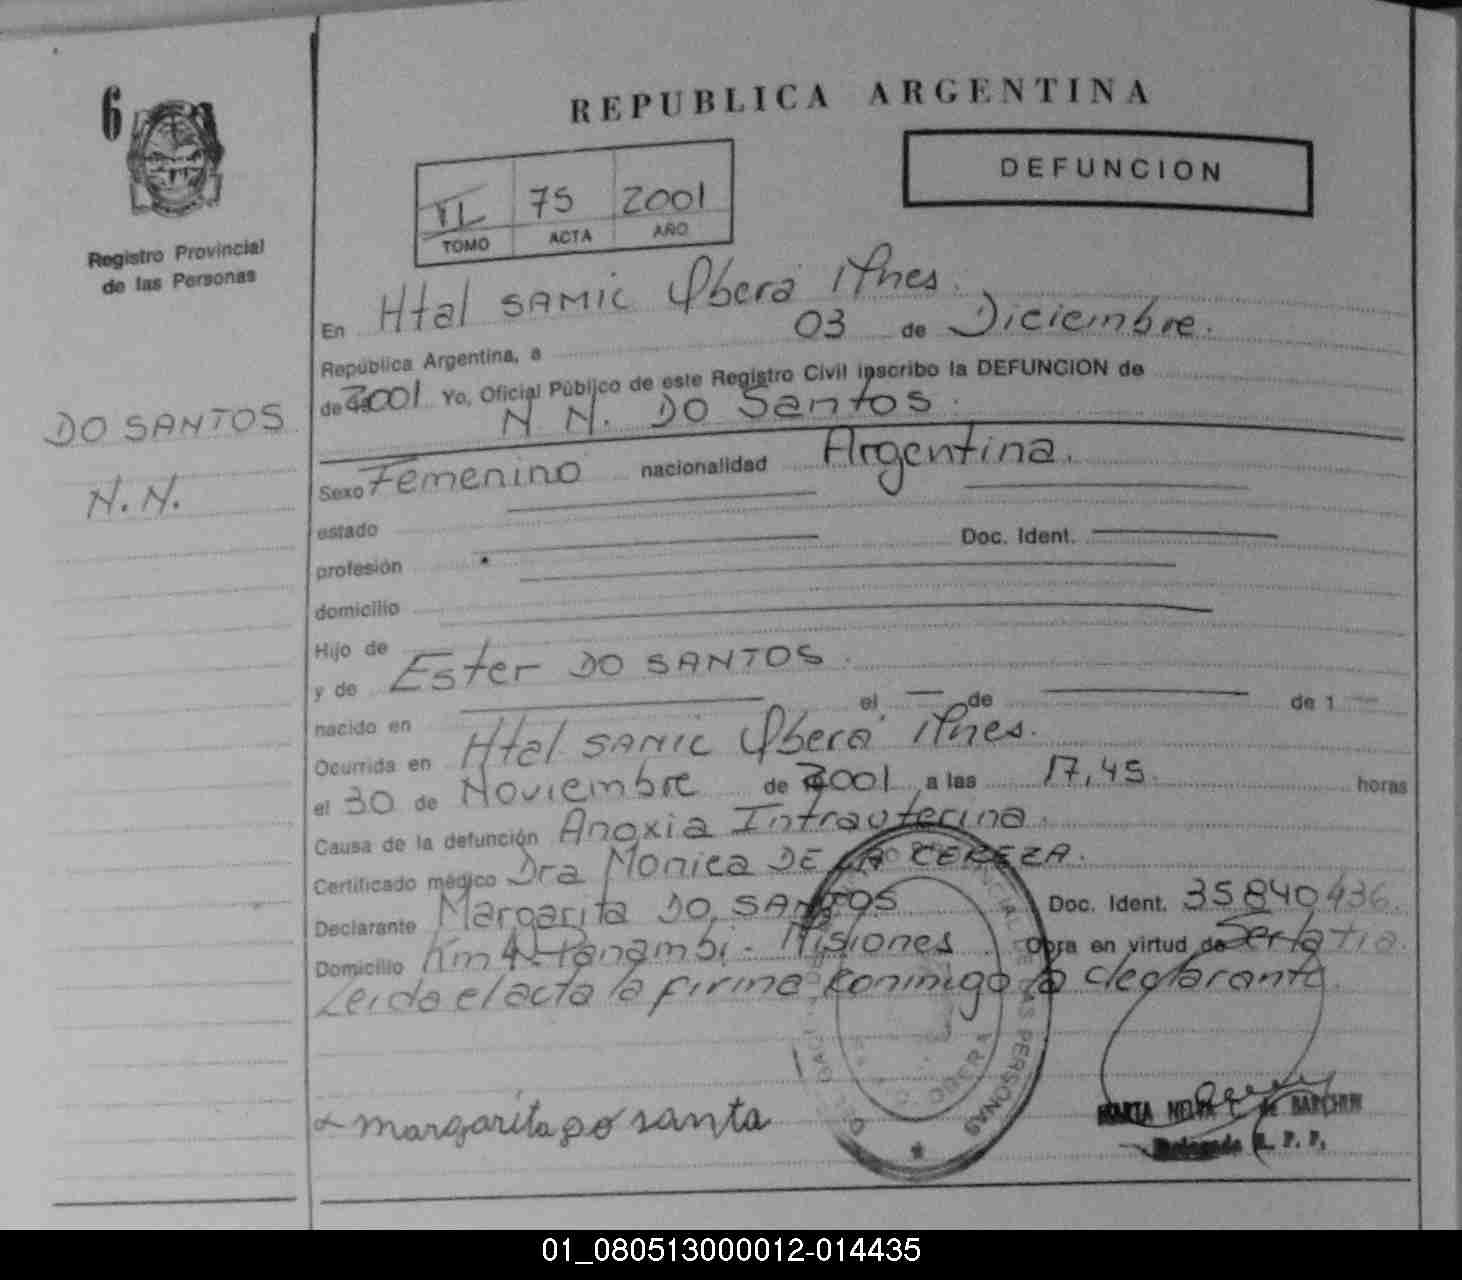 6
REPUBLICA ARGENTINA
DEFUNCION
75 2001
TOMO ACTA AÑO
Registro Provincial
de las Personas
En Htal SAMIC Oberá Mnes.
República Argentina, a 03 de Diciembre.
de 2001 Yo, Oficial Público de este Registro Civil inscribo la DEFUNCION de
N N. DO Santos.
DO SANTOS
N.N.
Sexo Femenino nacionalidad Argentina.
estado
profesión Doc. Ident.
domicilio
Hijo de
y de Ester DO SANTOS.
nacido en el de de 1
Ocurrida en Htal SAMIC Oberá Mnes.
el 30 de Noviembre de 2001 a las 17,45 horas
Causa de la defunción Anoxia Intrauterina.
Certificado médico Dra Monica DE LA CEREZA.
Declarante Margarita DO SANTOS Doc. Ident. 35840436.
Domicilio Km 4 Panambi - Misiones Obra en virtud de
Leida el acta la firma konmigo la declarante.
margarita do santa
PERSONAS
OBERA
MARTA NELVA de
Delegada R. P. P.
01_080513000012-014435